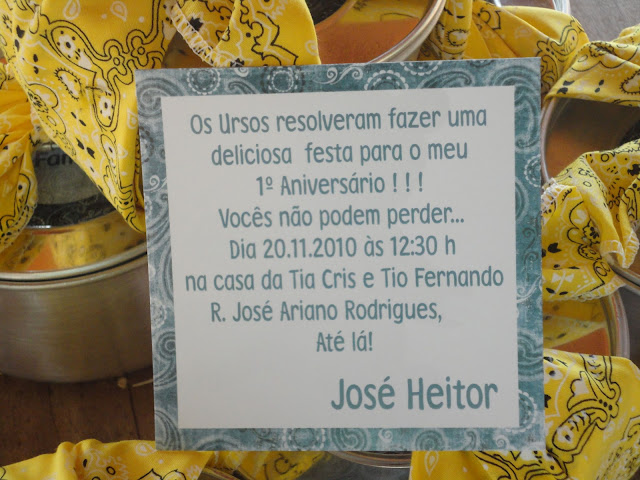 Os Ursos resolveram fazer uma
deliciosa festa para o meu
1º Aniversário ! ! !
Vocês não podem perder...
Dia 20.11.2010 às 12:30 h
na casa da Tia Cris e Tio Fernando
R. José Ariano Rodrigues,
Até lá!
José Heitor